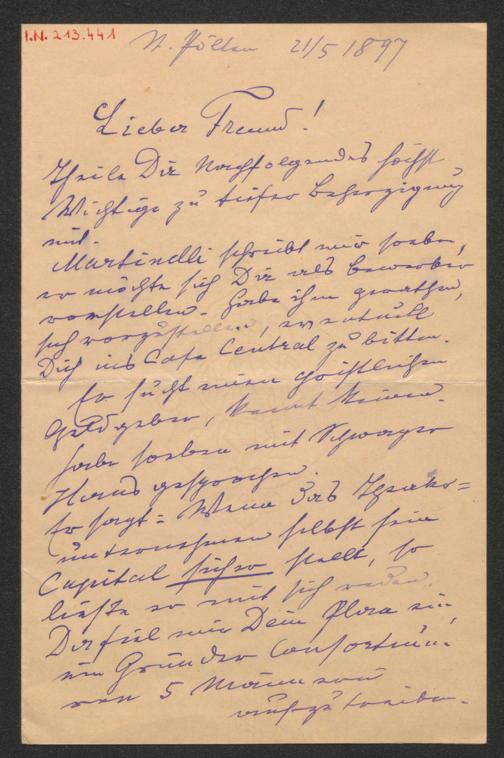 I.N. 213.441
St. Pölten 21/5 1897
Lieber Freund!
Theile Dir Nachfolgendes höchst
Wichtige zu tiefer Beherzigung
mit.
Martinelli schreibt mir soeben,
er möchte sich Dir als Bewerber
vorstellen. Habe ihm gerathen,
sich vorzustellen, eventuell
Dich ins Cafe Central zu bitten.
Er sucht einen christlichen
Geldgeber, kennt keinen.
Habe soeben mit Schwager
Hans gesprochen.
Er sagt: Wenn das Theater=
unternehmen selbst sein
Capital sicher stellt, so
ließe er mit sich reden.
Da fiel mir Dein Plan ein,
ein Gründer Consortium
von 5 Männern
aufzutreiben.